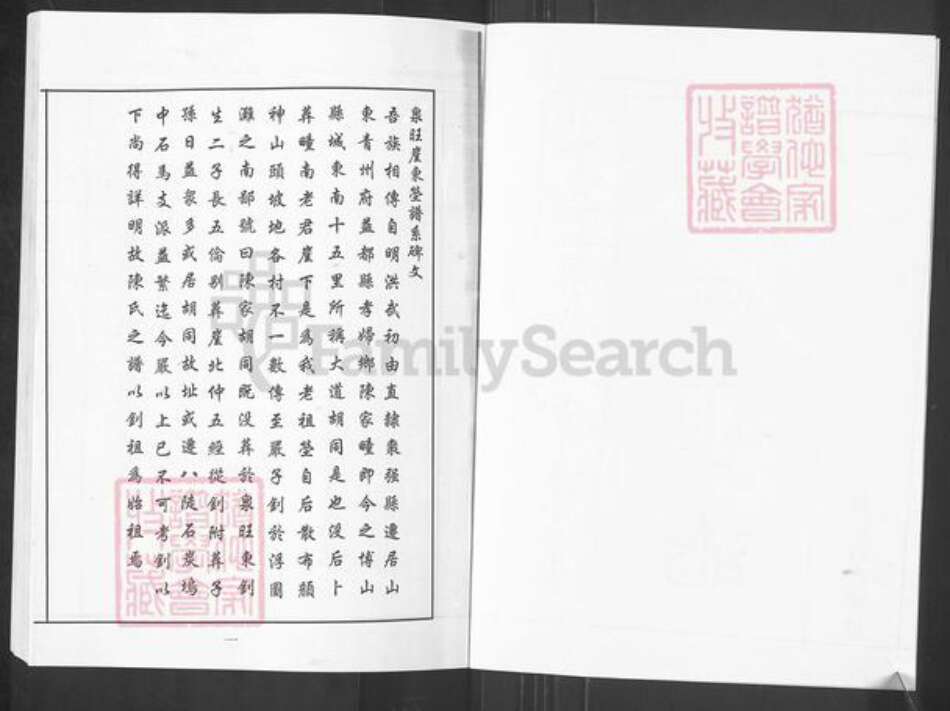 泉旺崖東塋譜系碑文
吾族相傳自明洪武初由直隸棗强縣遷居山
東青州府益都縣孝婦鄉陳家疃即今之博山
縣城東南十五里所稱大道胡同是也没后卜
葬疃南老君崖下是為我老祖塋自后散布顏
神山頭坡地各村不一數傳至嚴子釗於浮圖
灘之南鄙號曰陳家胡同既没葬於泉旺東釗
生二子長五倫别葬崖北仲五經從釗附葬子
孫日益衆多或居胡同故址或遷八陡石炭塢
中石馬支派益繁迄今嚴以上已不可考釗以
下尚得詳明故陳氏之譜以釗祖為始祖焉
一
猶他家
譜學會
收藏
猶他家
譜學會
收藏
FamilySearch